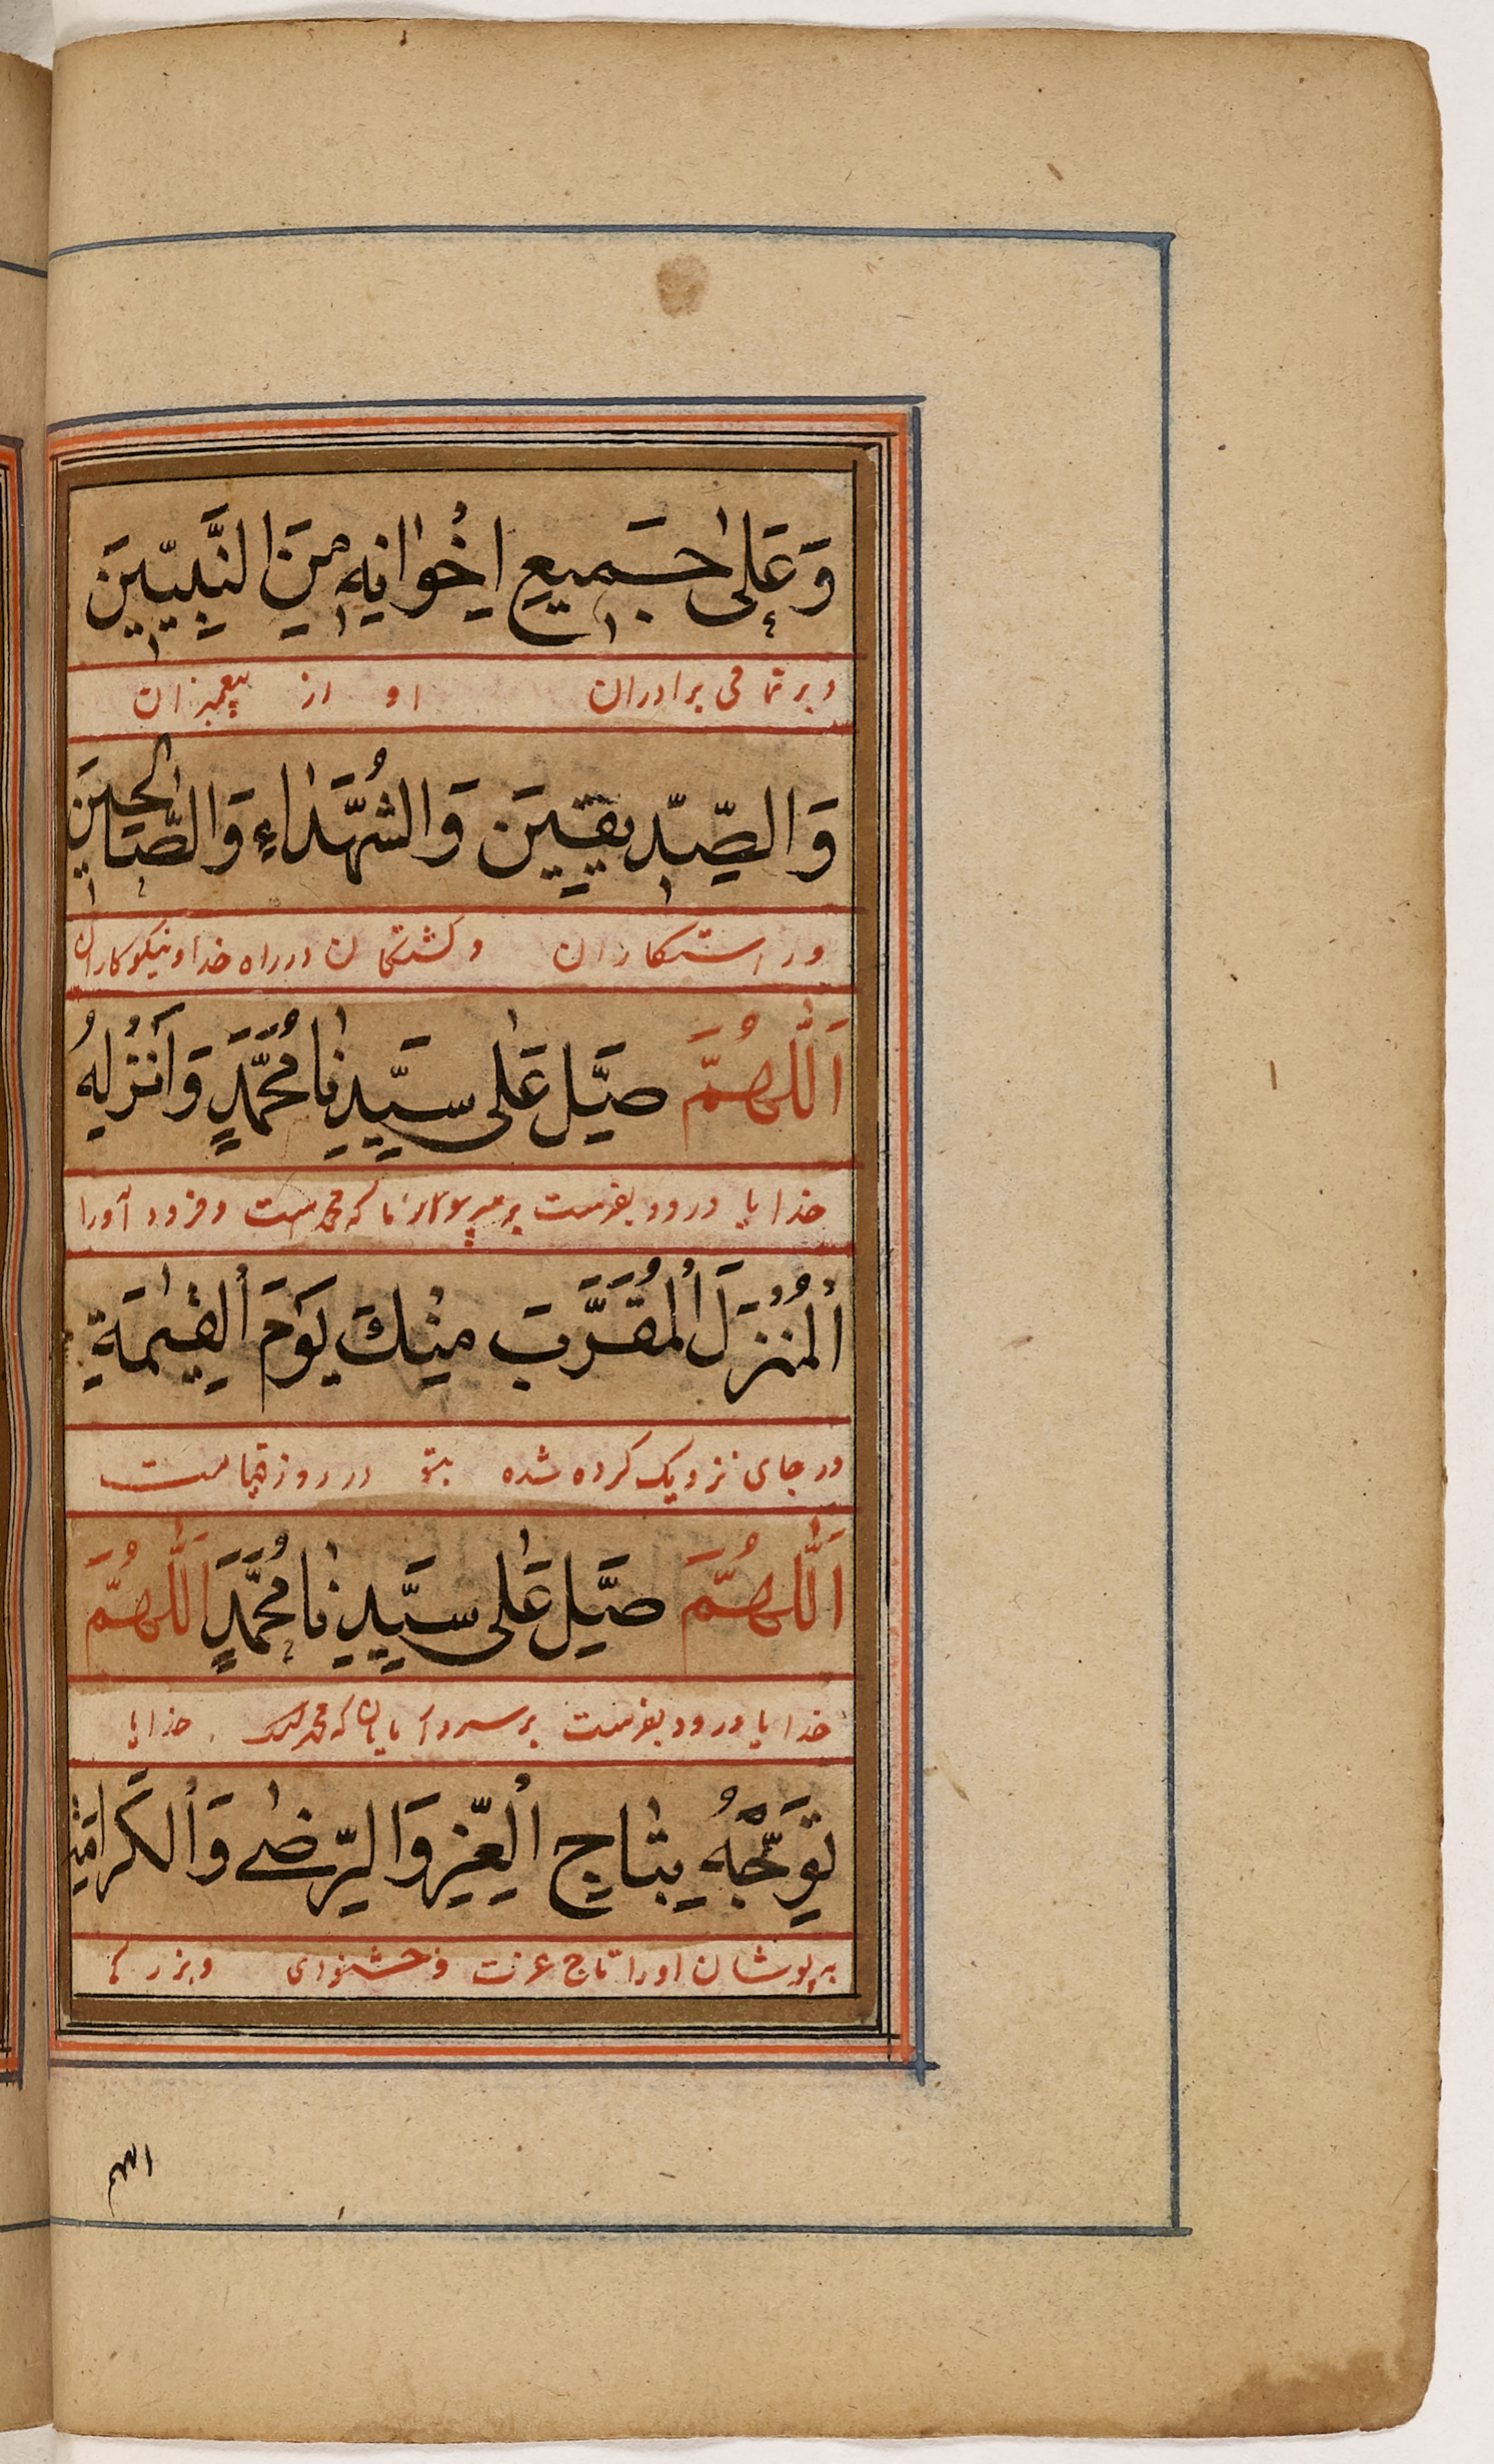 وَعَلىٰ جَمِيعِ اِخْوٰانِهِ مِنَ النَّبِيّٖينَ
و بر تمامی برادران او از پیغمبران
وَالصِّدّٖيقٖينَ وَالشُّهَدٰاءِ وَالصّٰالِحينَ
و راستکاران و کشتکان در راه خدا و نیکوکاران
اَللّٰهُمَّ صَلِّ عَلٰى سَيِّدِنٰا مُحَمَّدٍ وَاَنْزِلْهُ
خدایا درود بفرست بر که محمد است و فرود آورا
اْلمُنْزَلَ اْلمُقَرَّبَ مِنْكَ يَوْمَ اْلقِيٰمَةِ
در جای نزدیک کرده شده بتو در روز قیامت
اَللّٰهُمَّ صَلِّ عَلٰى سَيِّدِنٰا مُحَمَّدٍ اَللّٰهُمَّ
خدایا درود بفرست بر سردار که محمد است خدایا
تَوِّجْهُ بِتٰاجِ اْلعِزِّ وَالرِّضٰى وَاْلكَرامَةِ
به پوشان اورا تاج عزت و خشنودی و بزرکی
اللهم